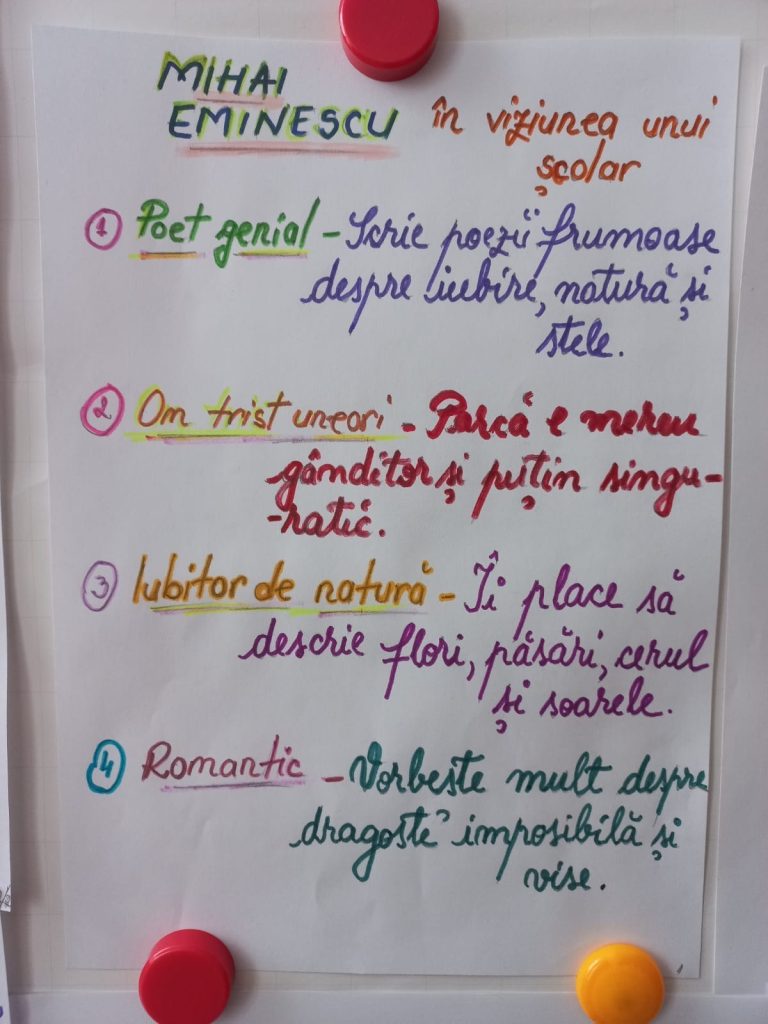 MIHAI
EMINESCU în viziunea unui
școlar
1 Poet genial - Scrie poezii frumoase
despre iubire, natură și
stele.
2 Om trist uneori - Parcă e mereu
gânditor și puțin singu-
-ratic.
3 Iubitor de natură - Îi place să
descrie flori, păsări, cerul
și soarele.
4 Romantic - Vorbește mult despre
dragoste imposibilă și
vise.